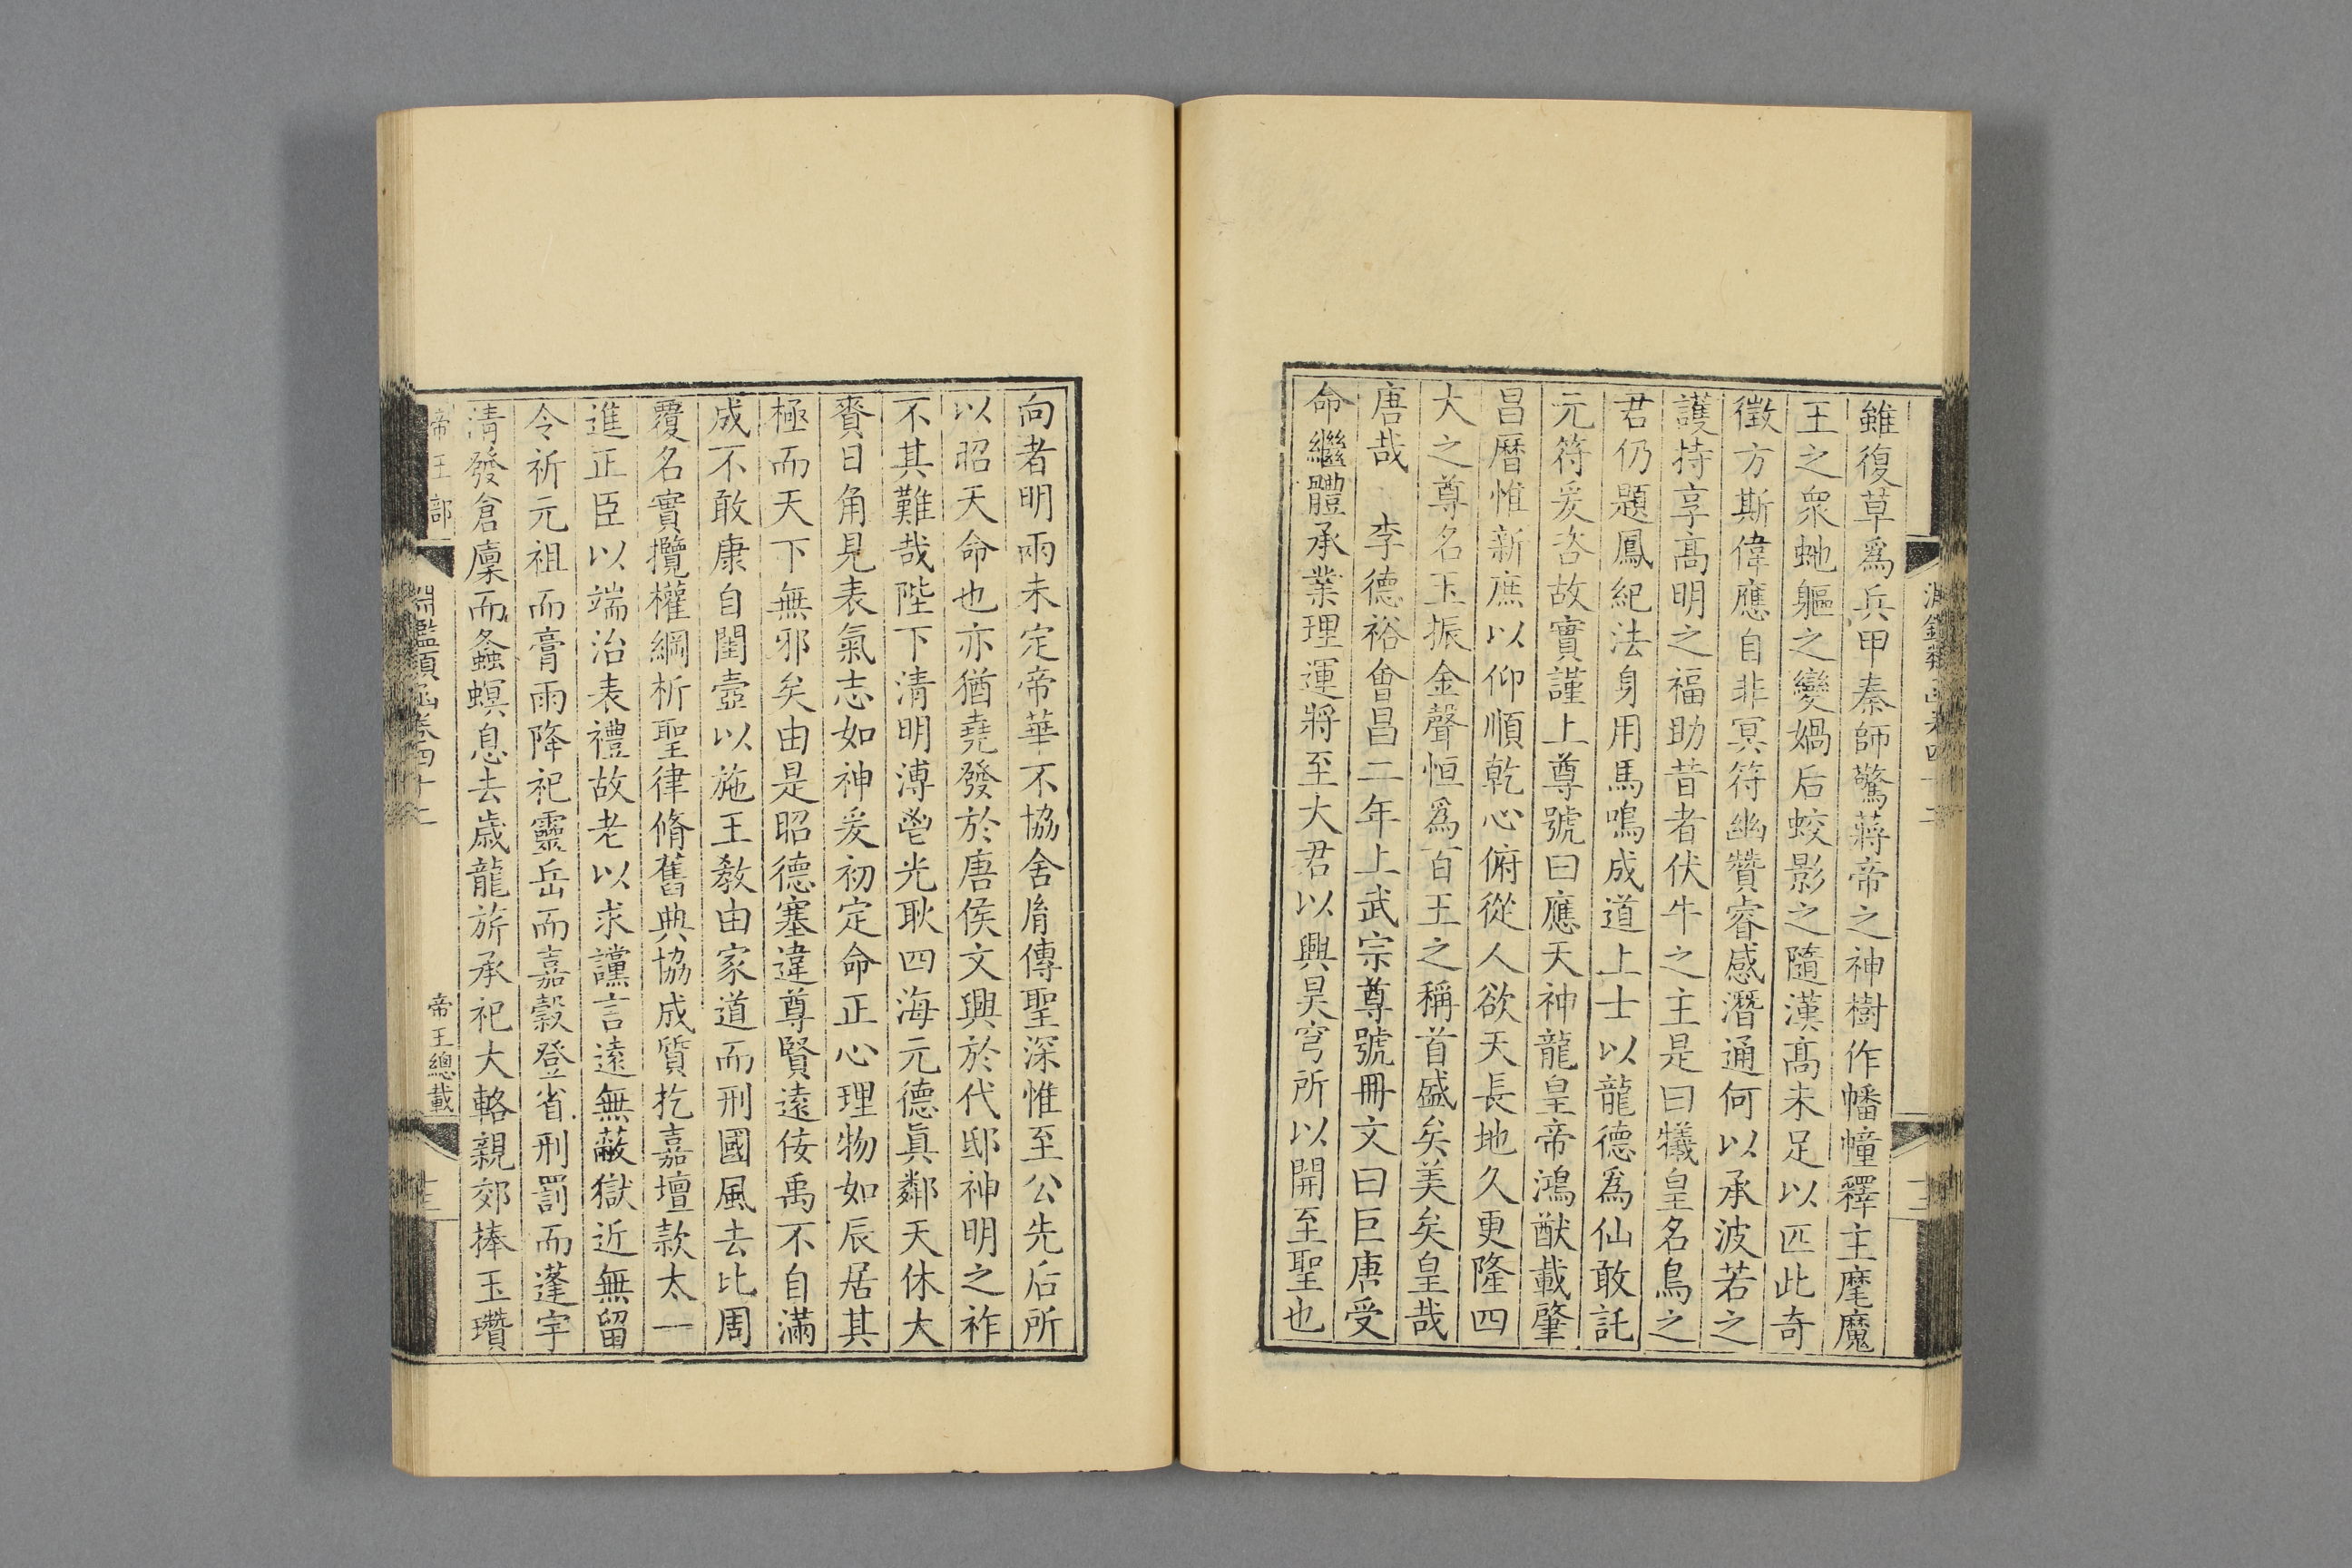 雖復草爲兵甲秦師驚蔣帝之神樹作幡幢釋主麾魔
王之衆虵軀之變媧后蛟影之隨漢髙未足以匹此奇
徵方斯偉應自非冥符幽贊睿感潛通何以承波若之
護持享髙明之福助昔者伏牛之主是曰犧皇名鳥之
君仍題鳳紀法身用馬鳴成道上士以龍德爲仙敢託
元符爰咨故實謹上尊號曰應天神龍皇帝鴻猷載肇
昌曆惟新庶以仰順乾心俯從人欲天長地久更隆四
大之尊名玉振金聲恒爲百王之稱首盛矣美矣皇哉
唐哉　李德裕會昌二年上武宗尊號冊文曰巨唐受
命繼體承業理運將至大君以興昊穹所以開至聖也
向者明兩未定帝華不協舍胤傳聖深惟至公先后所
以昭天命也亦猶堯發於唐侯文興於代邸神明之祚
不其難哉陛下清明溥鬯光耿四海元德眞鄰天休大
賚日角見表氣志如神爰初定命正心理物如辰居其
極而天下無邪矣由是昭德塞違尊賢遠佞禹不自滿
成不敢康自閨壼以施王教由家道而刑國風去比周
覆名實攬權綱析聖律脩舊典協成質扢嘉壇款太一
進正臣以端治表禮故老以求讜言遠無蔽獄近無留
令祈元祖而膏雨降祀靈岳而嘉穀登省刑罰而蓬宇
淸發倉廩而螽螟息去歳龍旂承祀大輅親郊捧玉瓚
帝王部
淵鑑類函卷四十二
帝王總載